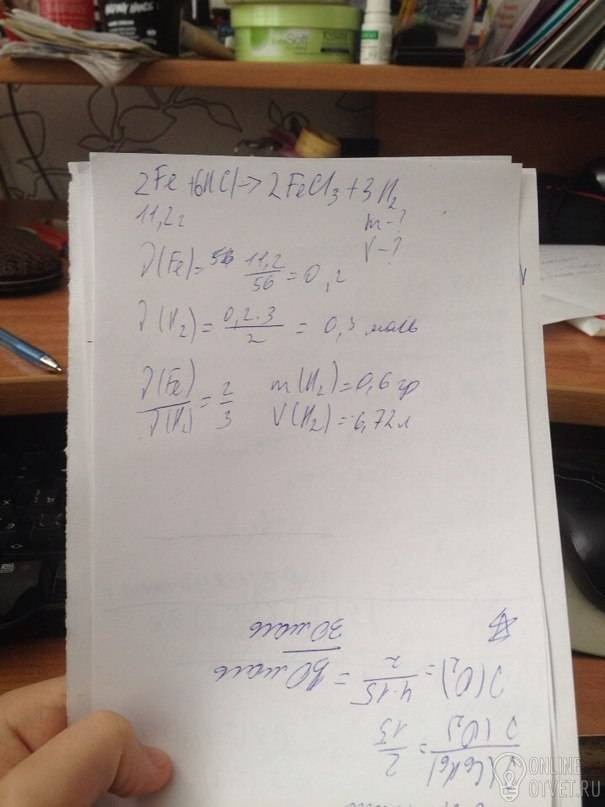 2Fe + 6HCl → 2FeCl₃ + 3H₂
11,2 г
m - ?
V - ?
ν(Fe) = 11,2/56 = 0,2
ν(H₂) = 0,2·3/2 = 0,3 моль
ν(Fe)/ν(H₂) = 2/3
m(H₂) = 0,6 гр
V(H₂) = 6,72 л
ν(C₆H₆)/ν(O₂) = 2/15
ν(O₂) = 4·15/2 =
моль
30 моль
ONLINE
OTVET.RU